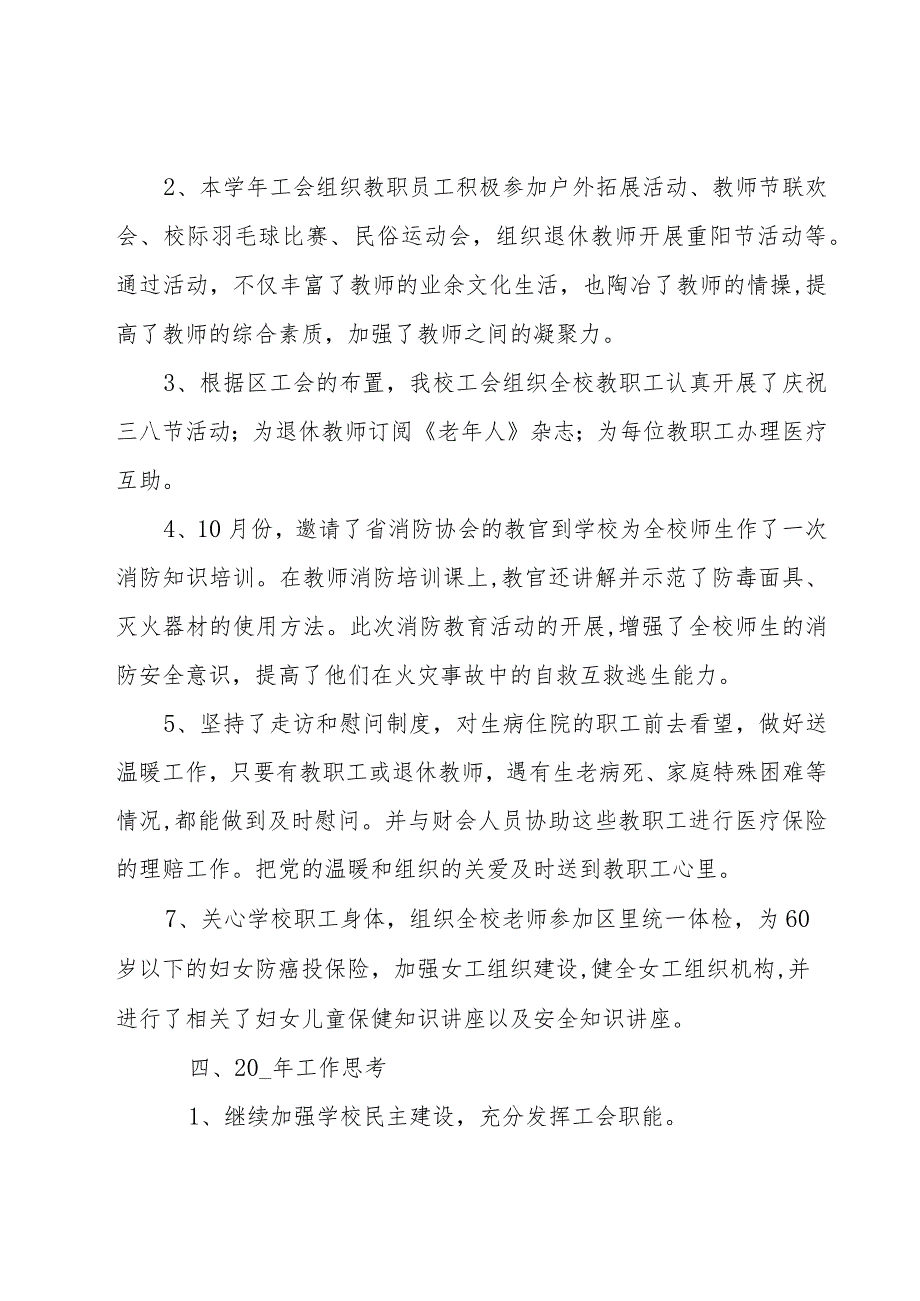 2、本学年工会组织教职员工积极参加户外拓展活动、教师节联欢
会、校际羽毛球比赛、民俗运动会，组织退休教师开展重阳节活动等。
通过活动，不仅丰富了教师的业余文化生活，也陶冶了教师的情操,提
高了教师的综合素质，加强了教师之间的凝聚力。
3、根据区工会的布置，我校工会组织全校教职工认真开展了庆祝
三八节活动；为退休教师订阅《老年人》杂志；为每位教职工办理医疗
互助。
4、10 月份，邀请了省消防协会的教官到学校为全校师生作了一次
消防知识培训。在教师消防培训课上,教官还讲解并示范了防毒面具、
灭火器材的使用方法。此次消防教育活动的开展,增强了全校师生的消
防安全意识，提高了他们在火灾事故中的自救互救逃生能力。
5、坚持了走访和慰问制度，对生病住院的职工前去看望，做好送
温暖工作，只要有教职工或退休教师，遇有生老病死、家庭特殊困难等
情况,都能做到及时慰问。并与财会人员协助这些教职工进行医疗保险
的理赔工作。把党的温暖和组织的关爱及时送到教职工心里。
7、关心学校职工身体，组织全校老师参加区里统一体检，为 60
岁以下的妇女防癌投保险，加强女工组织建设,健全女工组织机构,并
进行了相关了妇女儿童保健知识讲座以及安全知识讲座。
四、20_年工作思考
1、继续加强学校民主建设，充分发挥工会职能。